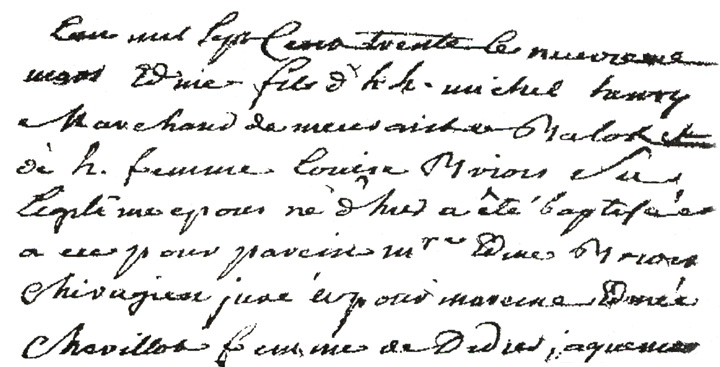 Lan mil Sept Cens trente le neuvieme
mars Edme fils d h.h. michel henry
Marchand demeurant a Balot et
de h. femme louise Briois Sa
legitime epouse né d'hier a été baptisé
a eu pour parein mre Edme Briois
Chirugien juré et pour mareine Edmée
Chevillot femme de Didier jaquemar